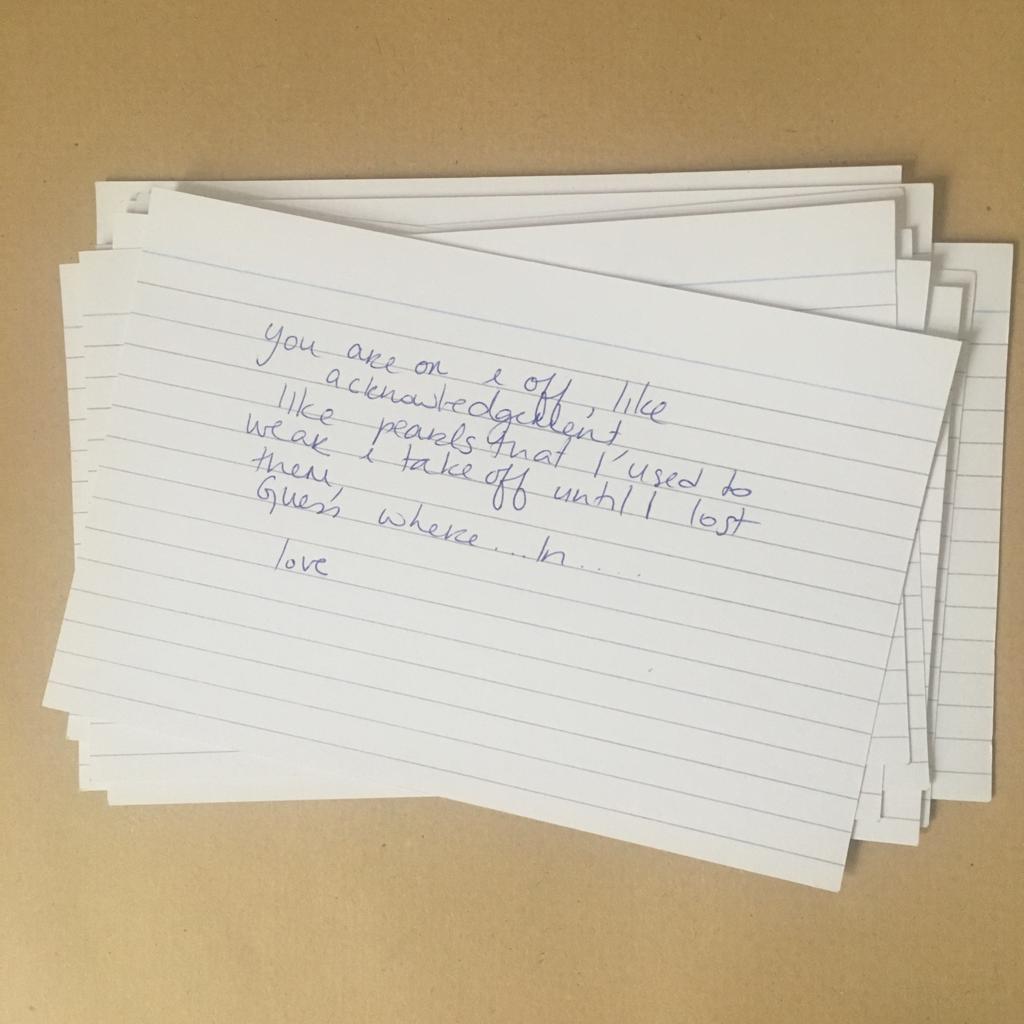 you are on & off, like
acknowledgement
like pearls that I used to
wear & take off until I lost
them,
Guess where... In.....
love